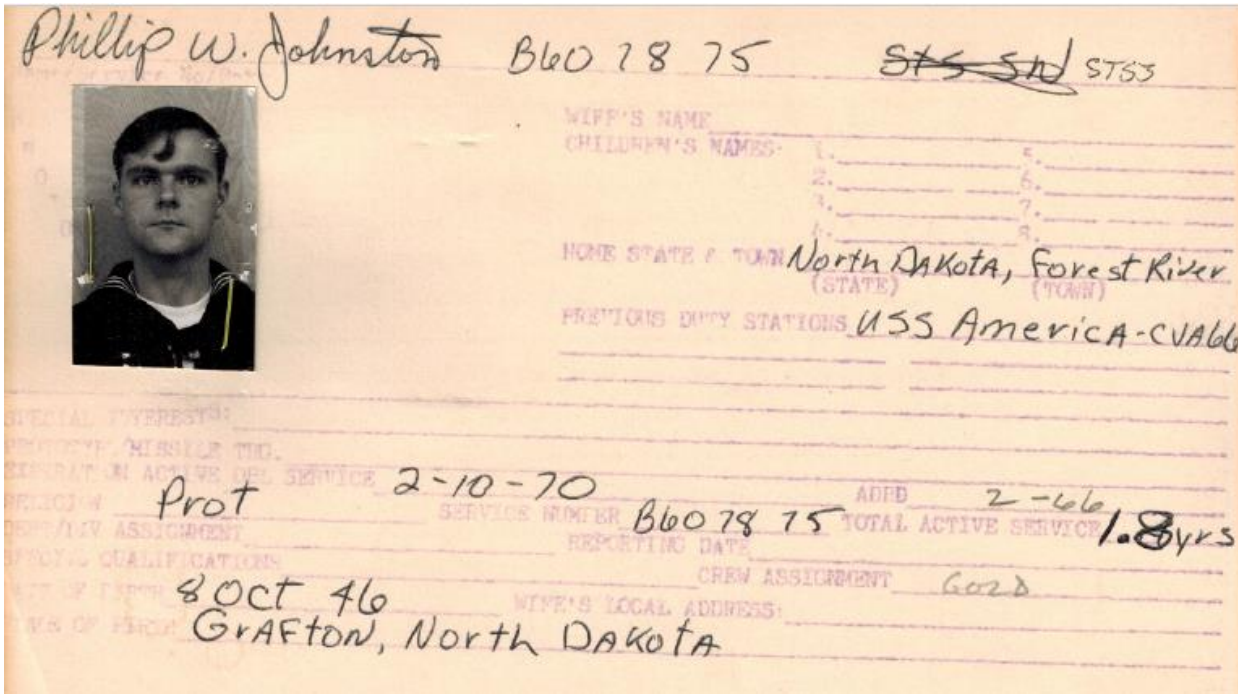 Phillip W. Johnston B60 78 75 STS SN STS3
WIFE'S NAME
CHILDREN'S NAMES: 1. 5.
2. 6.
3. 7.
4. 8.
HOME STATE & TOWN North DAKotA, Forest River
(STATE) (TOWN)
PREVIOUS DUTY STATIONS USS AmericA-CVA66
SPECIAL INTERESTS:
MISSILE TNG.
EXPIRATION ACTIVE OBL SERVICE 2-10-70
RELIGION Prot SERVICE NUMBER B60 78 75 ADBD 2-66 TOTAL ACTIVE SERVICE 1.8yrs
DEPT/DIV ASSIGNMENT REPORTING DATE
SPECIAL QUALIFICATIONS CREW ASSIGNMENT GOLD
DATE OF BIRTH 8 OCT 46 WIFE'S LOCAL ADDRESS:
OF BIRTH GrAFton, North DAKotA